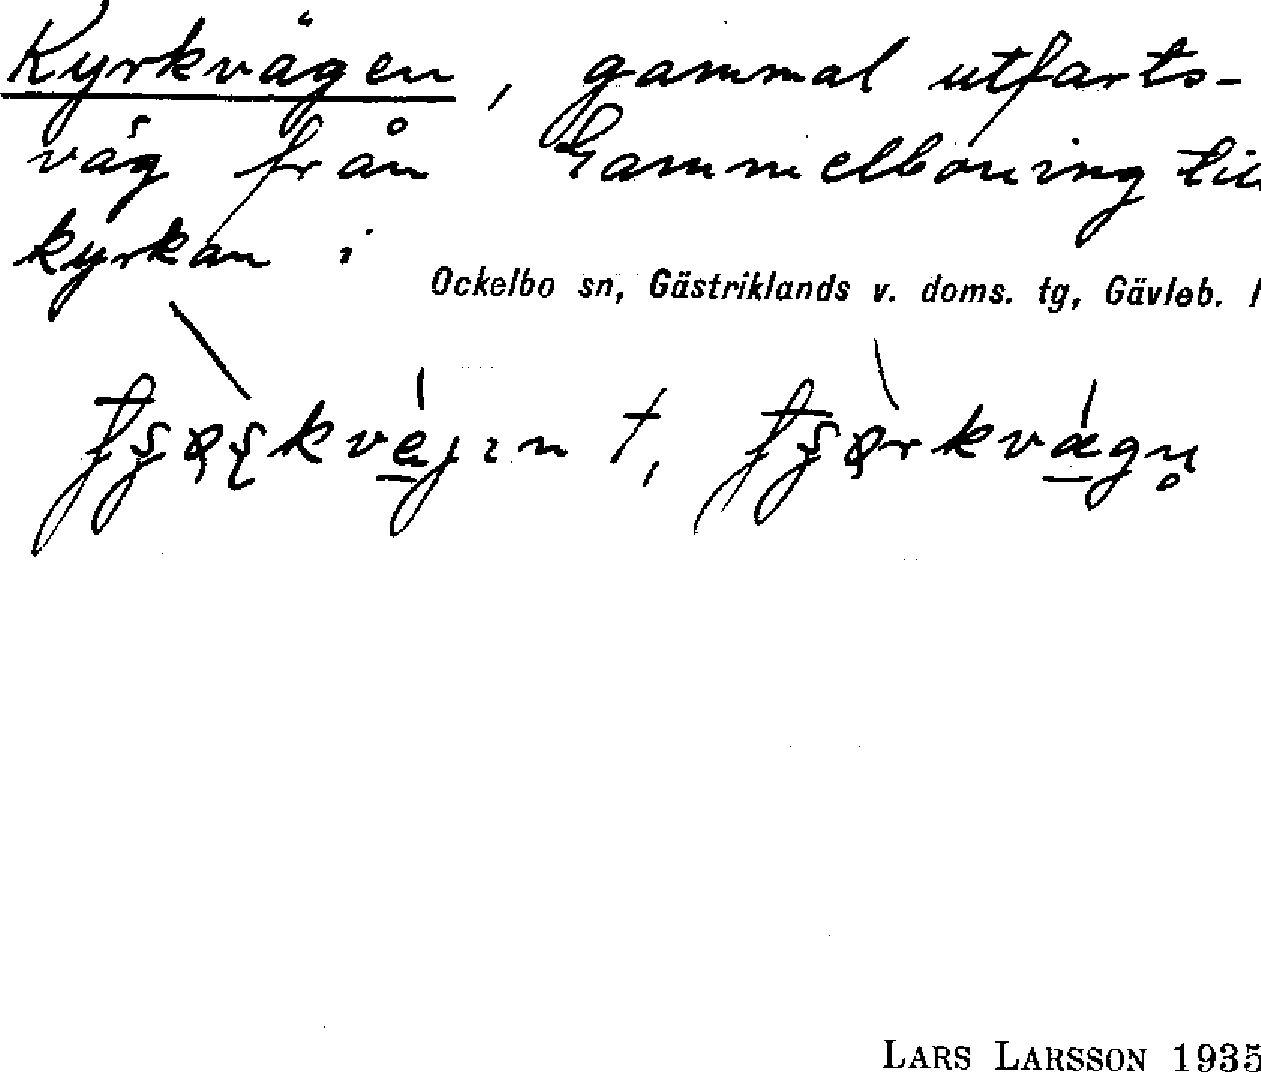 Kyrkvägen, gammal utfarts-
väg från Gammelboning till
kyrkan i
Ockelbo sn, Gästriklands v. doms. tg, Gävleb. l
LARS LARSSON 1935